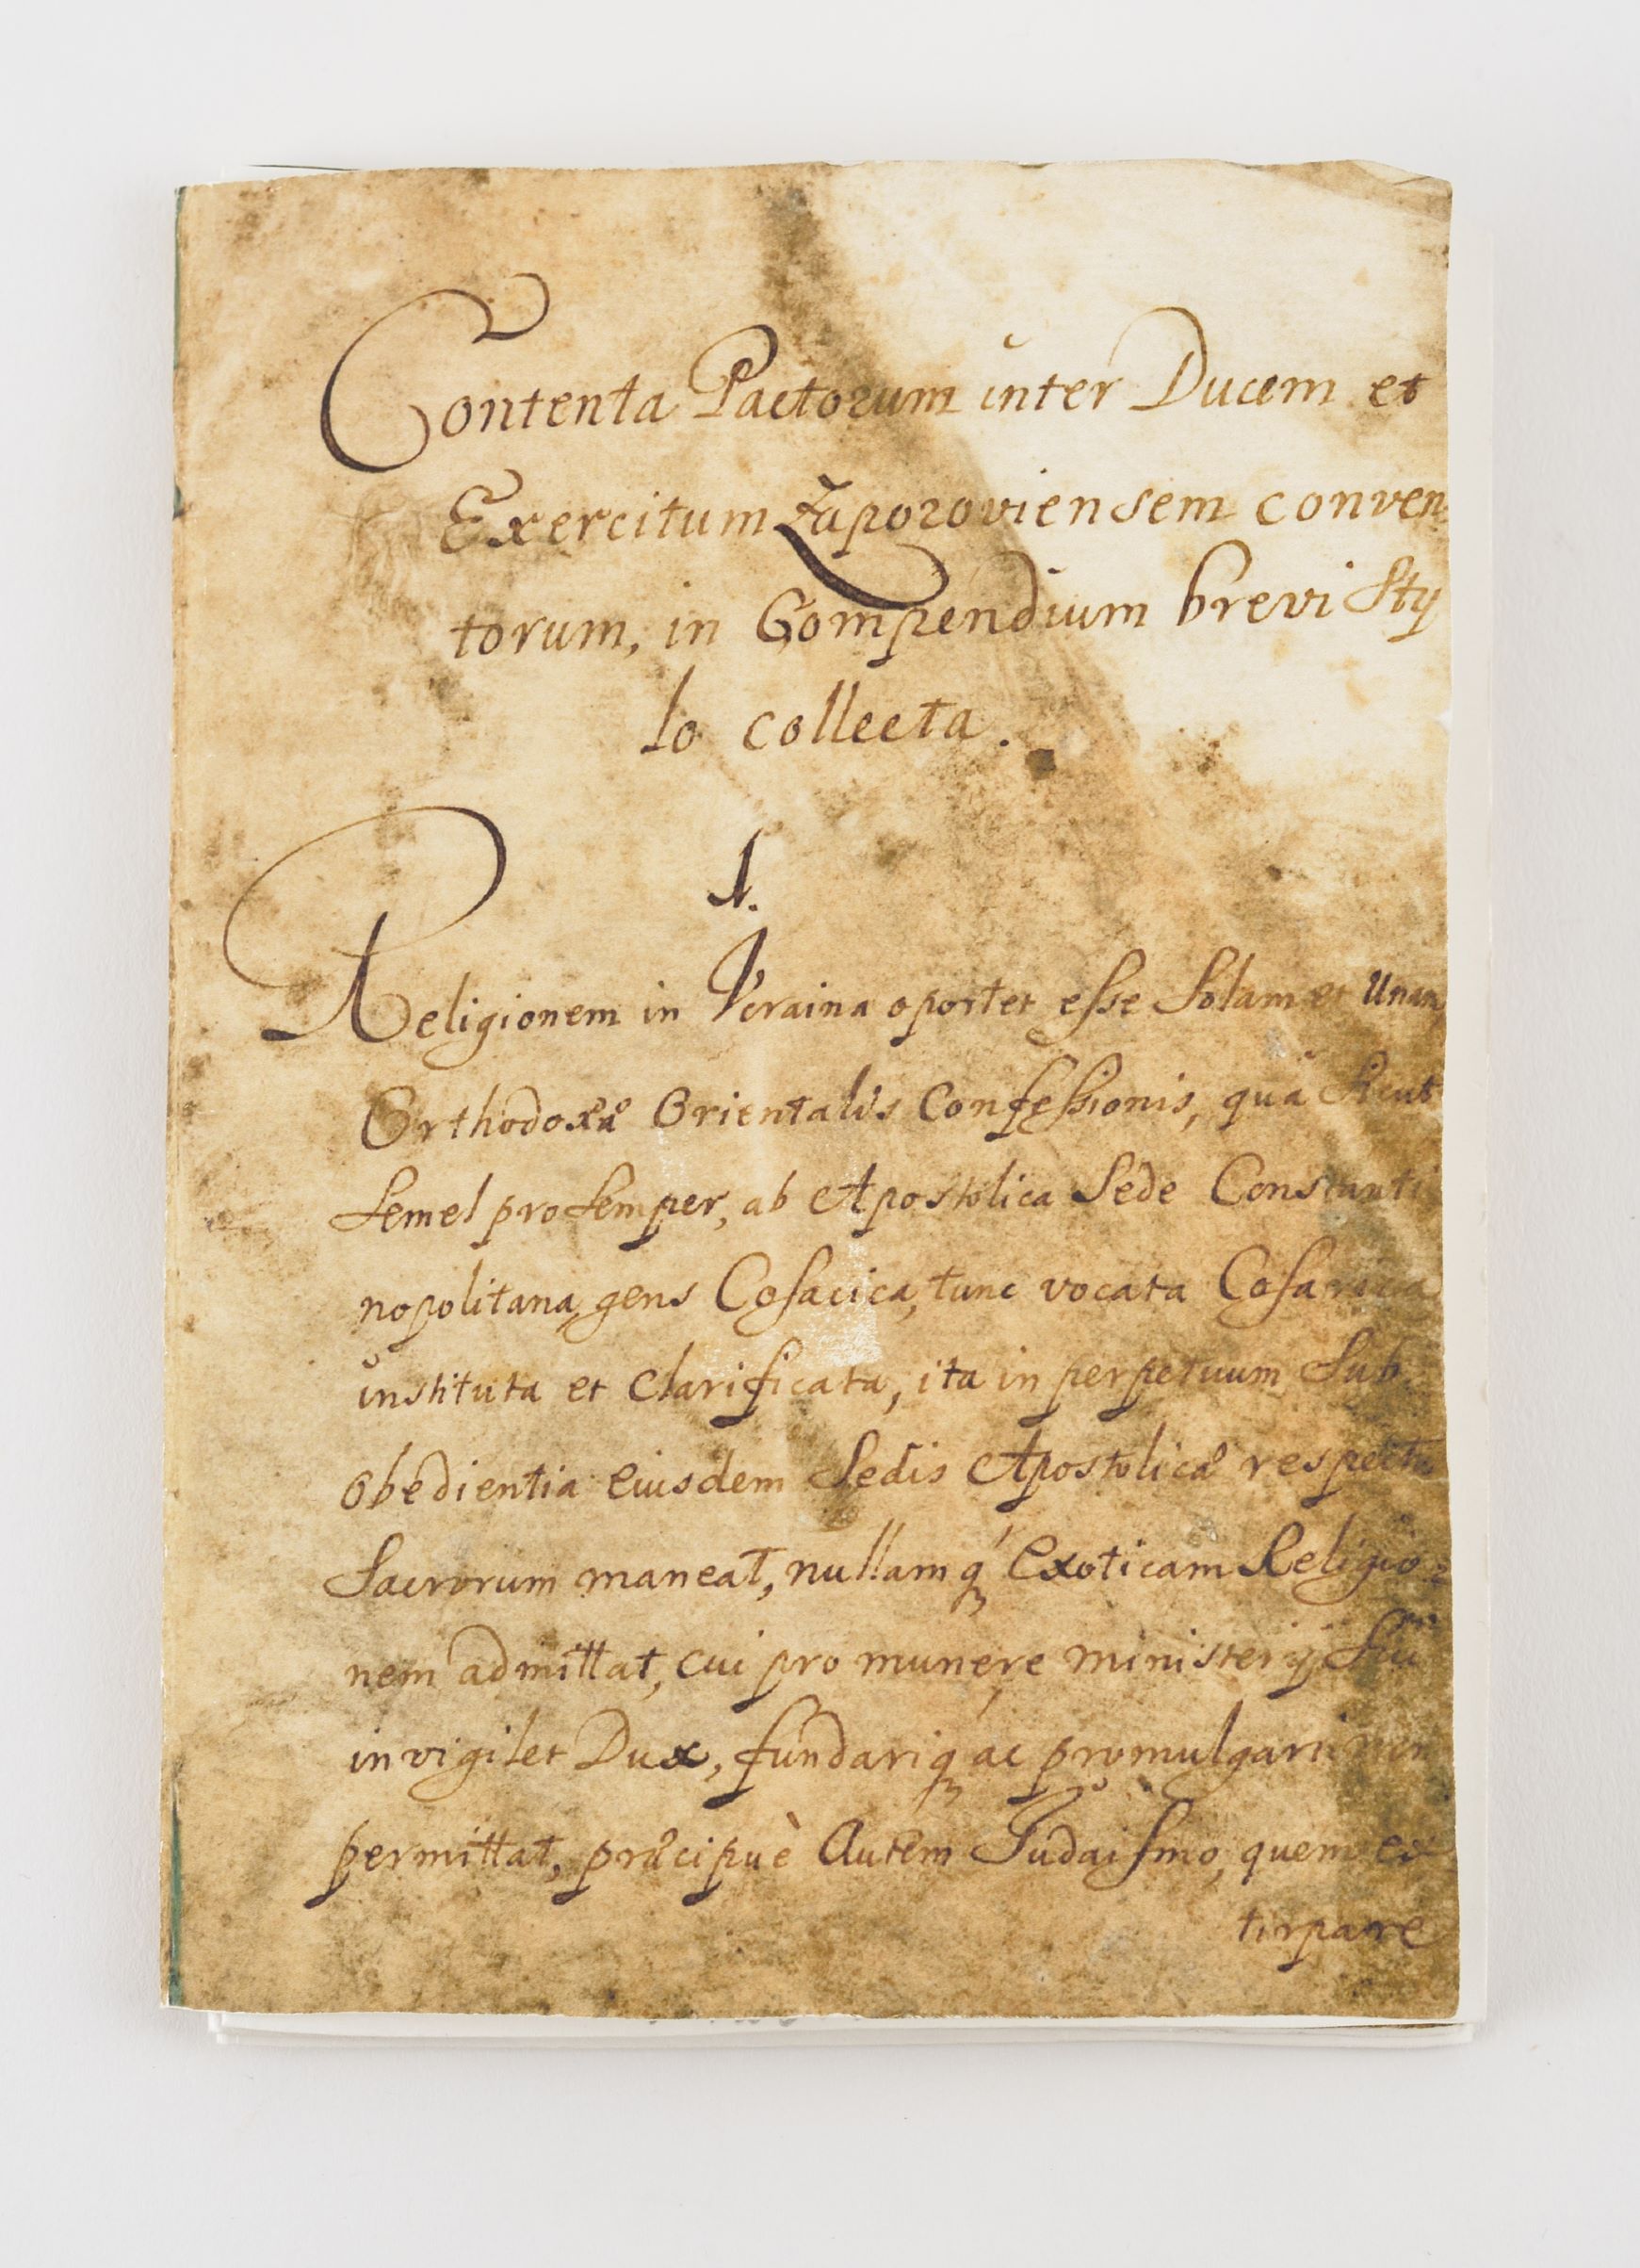 Contenta Pactorum inter Ducem et
Exercitum Zaporoviensem conven
torum, in Compendium brevi Sty
lo collecta.
1.
Religionem in Vcraina oportet esse Solam et Unam,
Orthodoxæ Orientalis Confessionis, quâ Sicut
Semel pro Semper, ab Apostolica Sede Constanti
nopolitana, gens Cosacica, tunc vocata Cosarica
instituta et Clarificata, ita in perpetuum Sub
Obedientia eiusdem Sedis Apostolicæ respectu
Sacrorum maneat, nullamq́ Exoticam Religio=
nem admittat, cui pro munere ministerij Sui
invigilet Dux, fundariq́ ac promulgari non
permittat, præcipuè Autem Judaismo, quem ex
tirpare